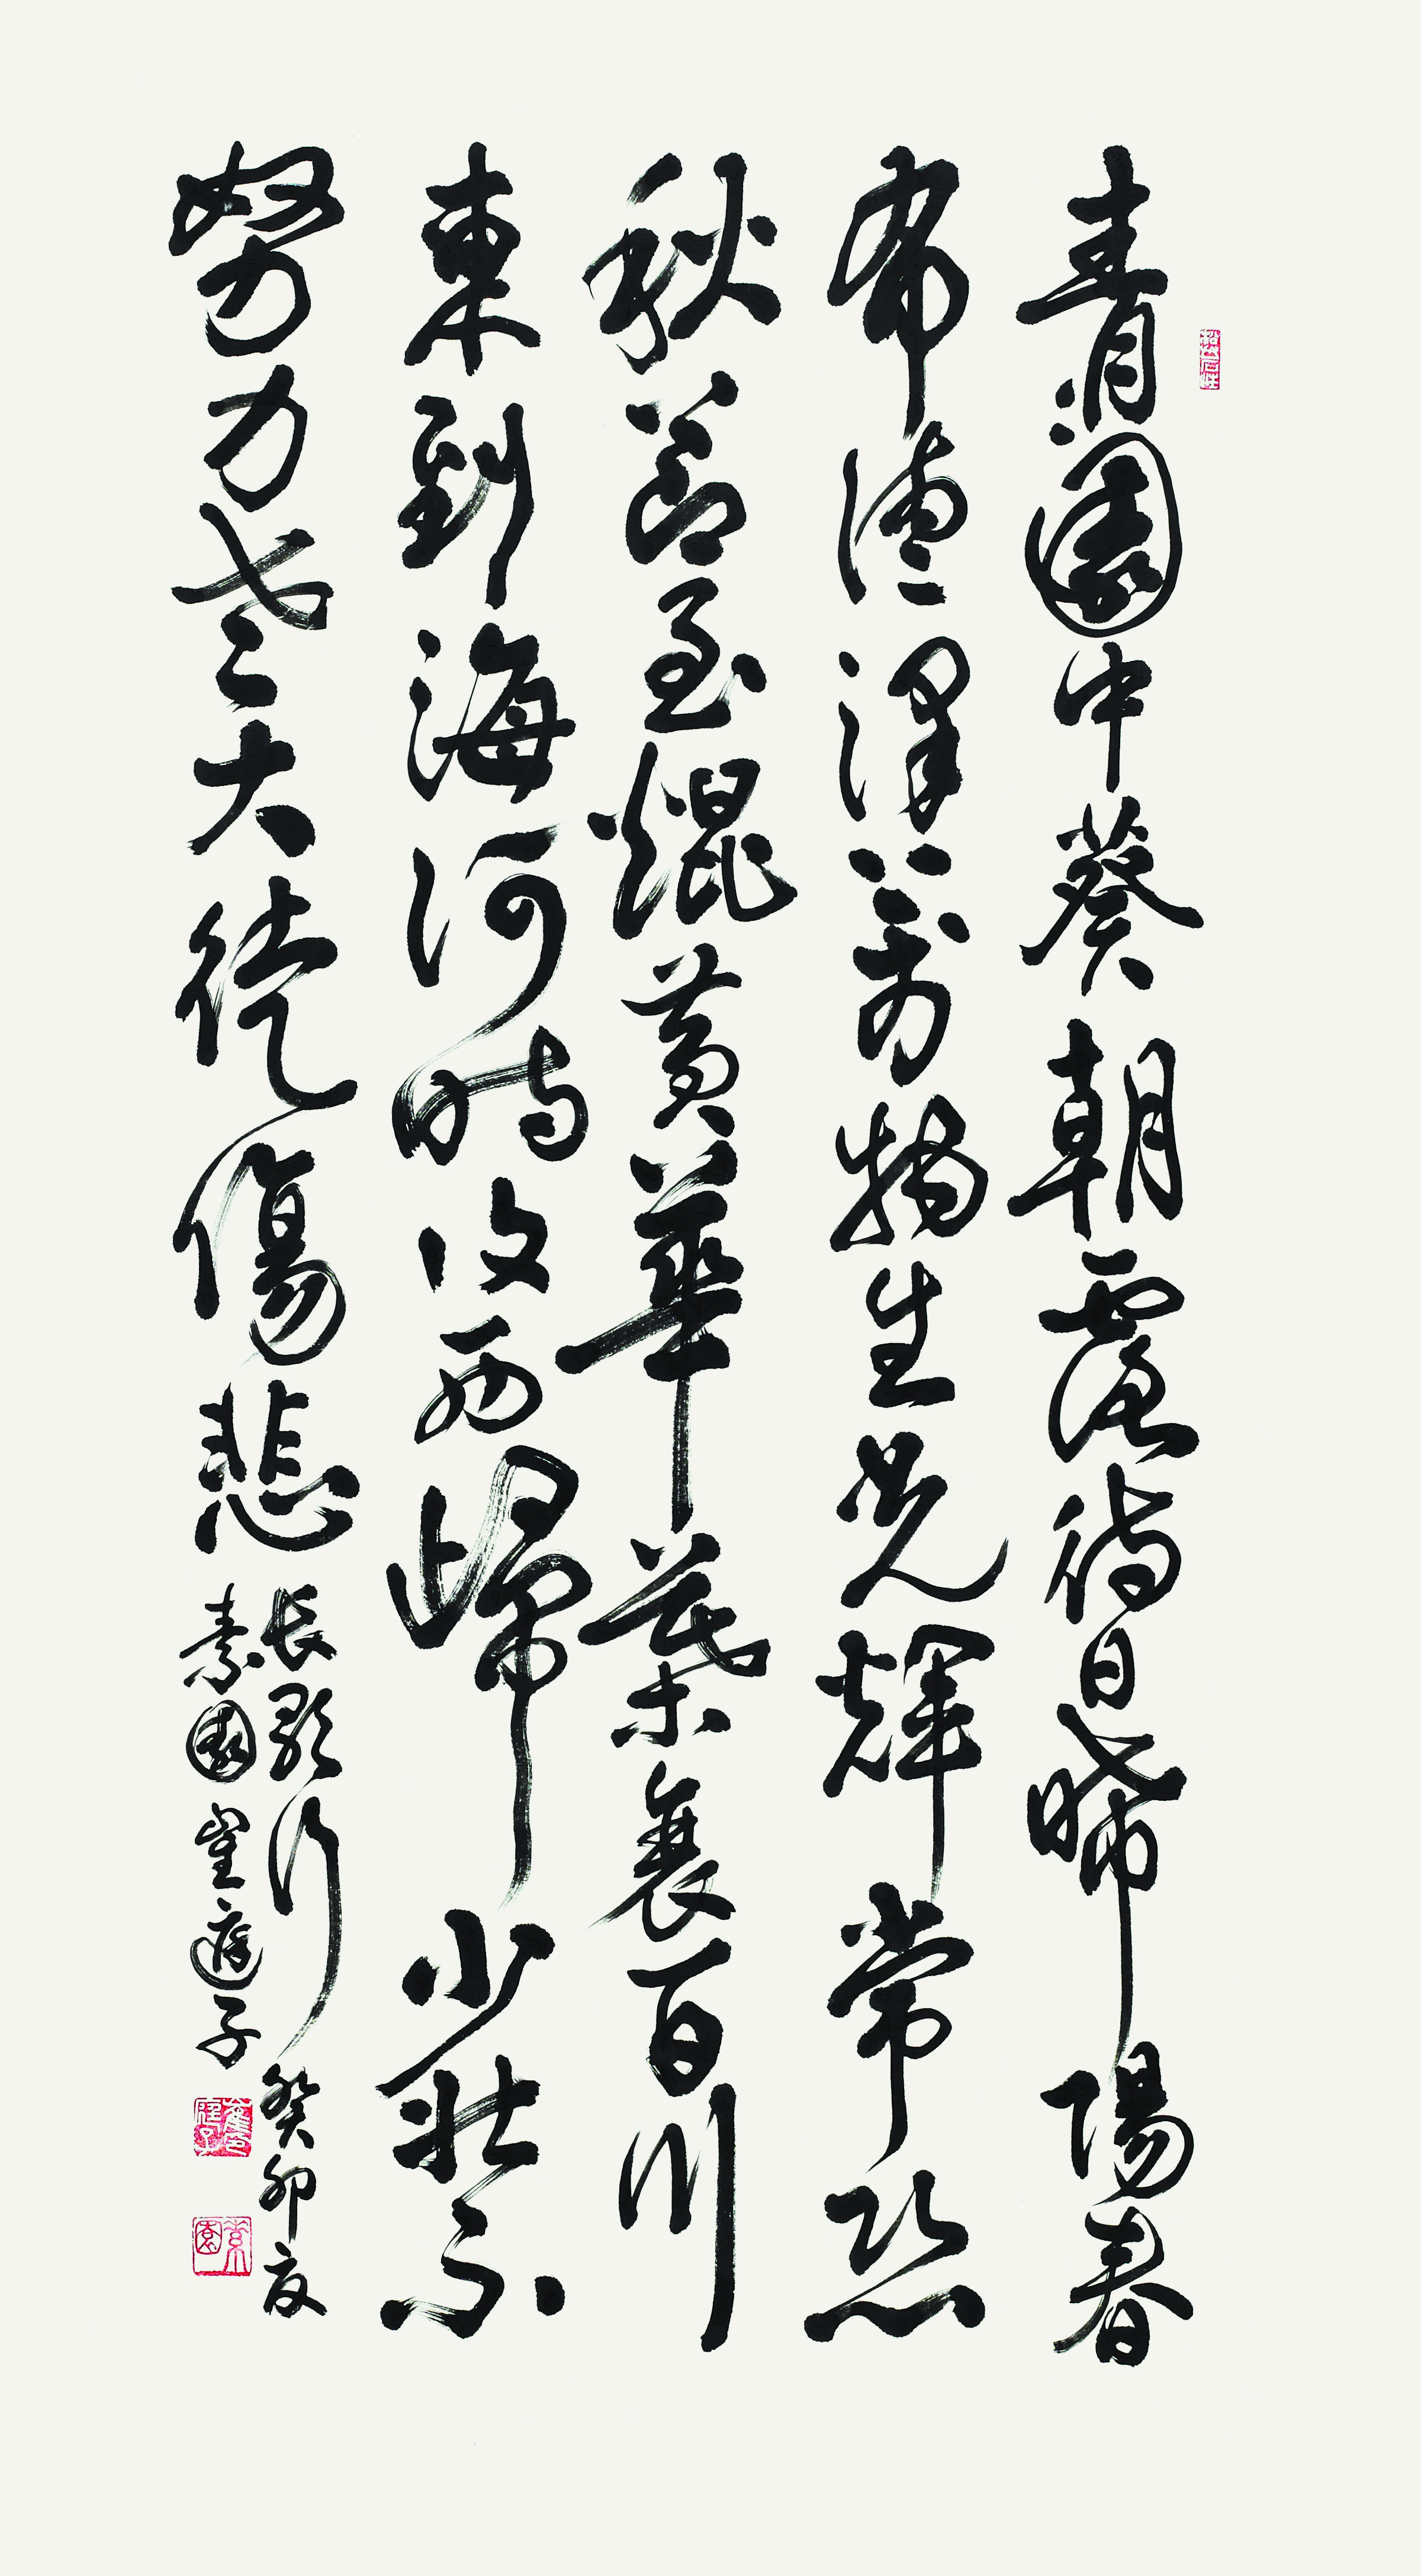 青々園中葵朝露待日晞陽春
布德澤萬物生光輝常恐
秋節至焜黃華葉衰百川
東到海何時復西歸少壯不
努力老大徒傷悲
長歌行 癸卯夏
素園 崔庭子
素園